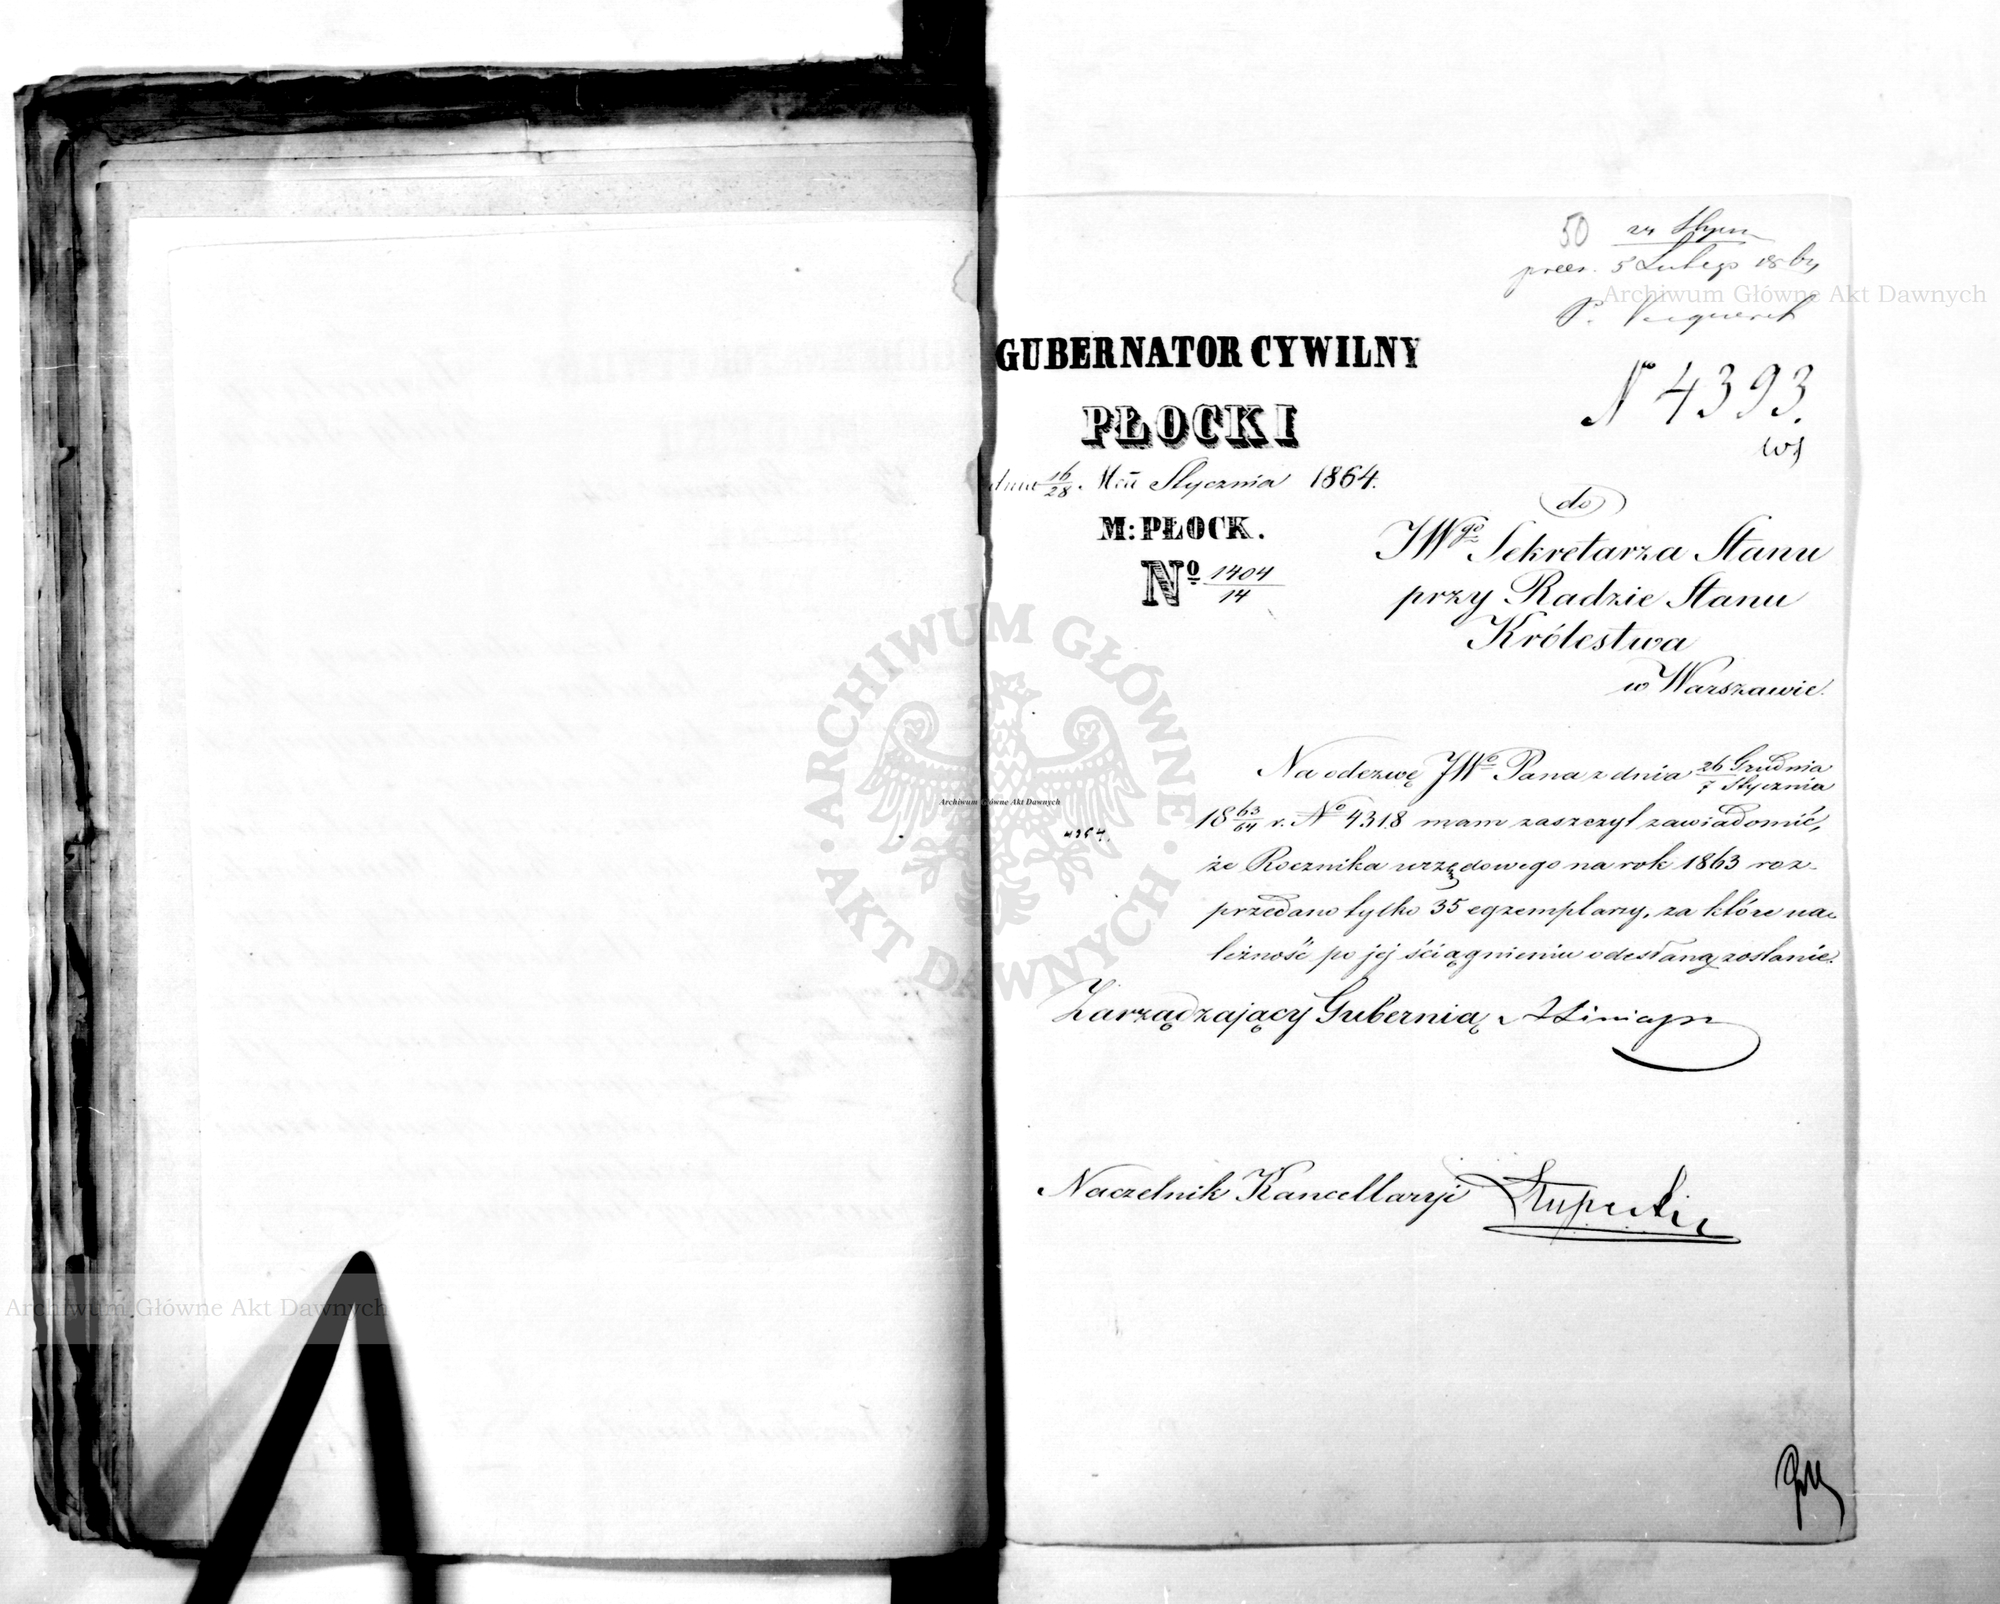 50 24 Stycz
prez. 5 Lutego 1864
GUBERNATOR CYWILNY
PŁOCKI
N 4393.
dnia 16/28 Mca Stycznia 1864.
M: PŁOCK.
Nº 1404/14
do
JWgo Sekretarza Stanu
przy Radzie Stanu
Królestwa
w Warszawie.
Na odezwę JWo Pana z dnia 26 Grudnia/7 Stycznia
1863/64 r. No 4318 mam zaszczyt zawiadomić,
że Rocznika urzędowego na rok 1863 roz-
przedano tylko 35 egzemplarzy, za które na-
leżność po jej ściągnieniu odesłaną zostanie.
4364.
Zarządzający Gubernią
Naczelnik Kancellaryi Słupecki
ARCHIWUM GŁÓWNE AKT DAWNYCH
Archiwum Główne Akt Dawnych
Archiwum Główne Akt Dawnych
Archiwum Główne Akt Dawnych